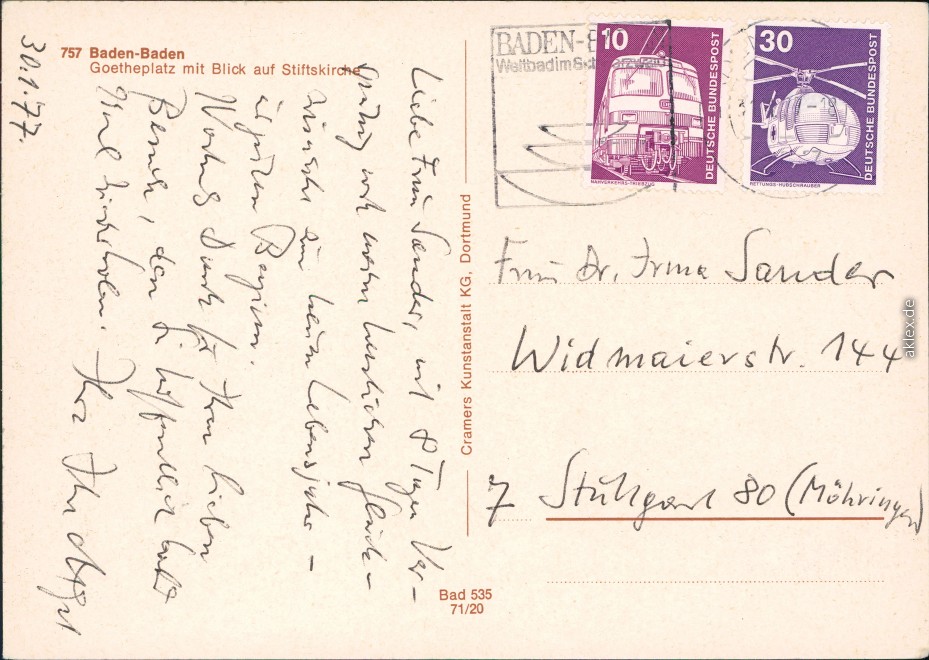 757 Baden-Baden
Goetheplatz mit Blick auf Stiftskirche
30.1.77.
Liebe Frau Sander, mit 8 Tagen Ver-
spätung noch meine herzlichen Glück-
wünsche zum neuen Lebensjahr -
Beginn.
Dank für Ihren lieben
Besuch, den Sie hoffentlich bald
Mal wiederholen. Ihr
Cramers Kunstanstalt KG, Dortmund
Bad 535
71/20
BADEN-B
Weltbad im Schwarzwald
10
DEUTSCHE BUNDESPOST
NAHVERKEHRS-TRIEBZUG
30
DEUTSCHE BUNDESPOST
RETTUNGS-HUBSCHRAUBER
Frau Dr. Irma Sander
Widmaierstr. 144
7 Stuttgart 80 (Möhringen)
aklex.de